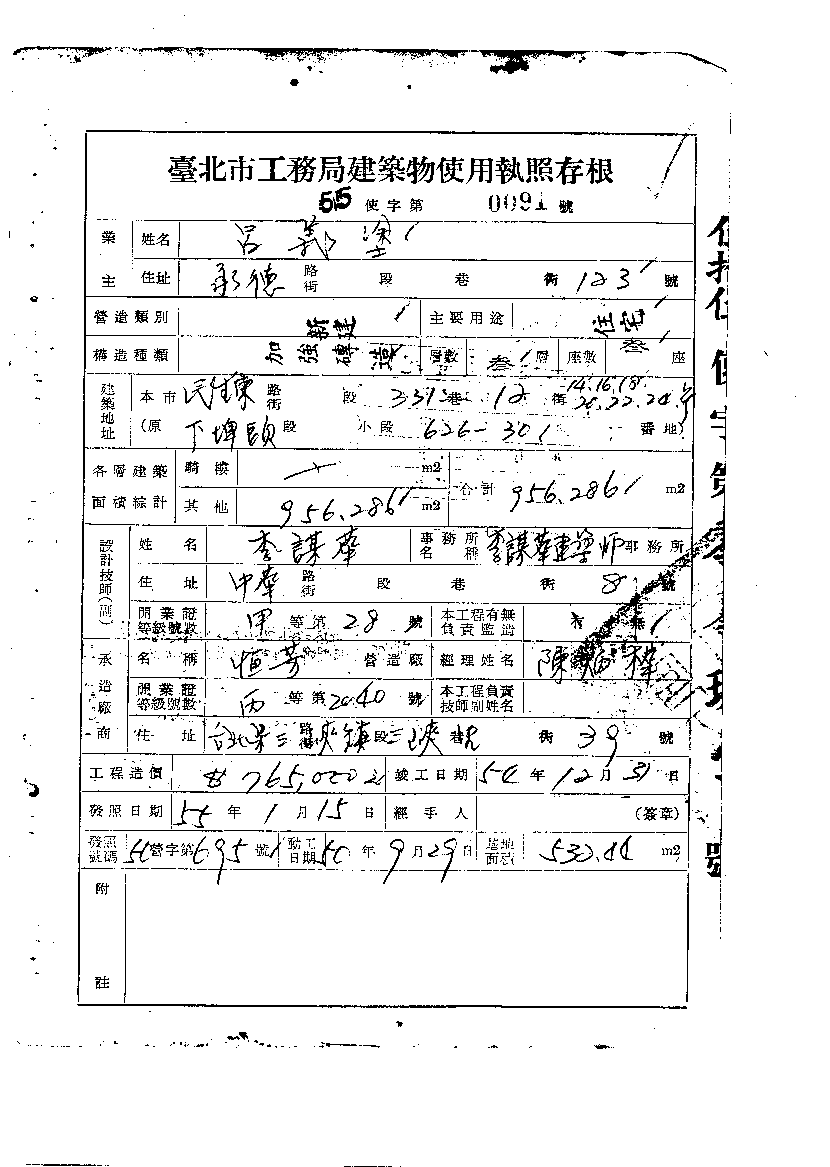 臺北市工務局建築物使用執照存根
55 使字第 0091 號
業主 姓名 呂義塗
住址 承德 路街 段 巷 衖 123 號
營造類別 新建 主要用途 住宅
構造種類 加強磚造 層數 叁 層 座數 叁 座
建築地址 本市 民生東 路街 段 331 巷 12 衖 14.16.18. 20.22.24 号
(原 下埤頭 段 小段 626-301 番地)
各層建築面積綜計 騎樓 m2 合計 956.286 m2
其他 956.286 m2
設計技師(副) 姓名 李謀華 事務所名稱 李謀華建築師 事務所
住址 中華 路街 段 巷 衖 8 號
開業證等級號數 甲 等第 28 號 本工程有無負責監造 有
承造廠商 名稱 恒芳 營造廠 經理姓名 陳 樟
開業證等級號數 丙 等第 2040 號 本工程負責技師副姓名
住址 台北県三峽鎮 路街 段 三峽 巷 衖 39 號
工程造價 765,000 竣工日期 54 年 12 月 31 日
發照日期 55 年 1 月 15 日 經手人 (簽章)
發照號碼 54 營字第 695 號 動工日期 54 年 9 月 29 日 基地面積 532.44 m2
附註